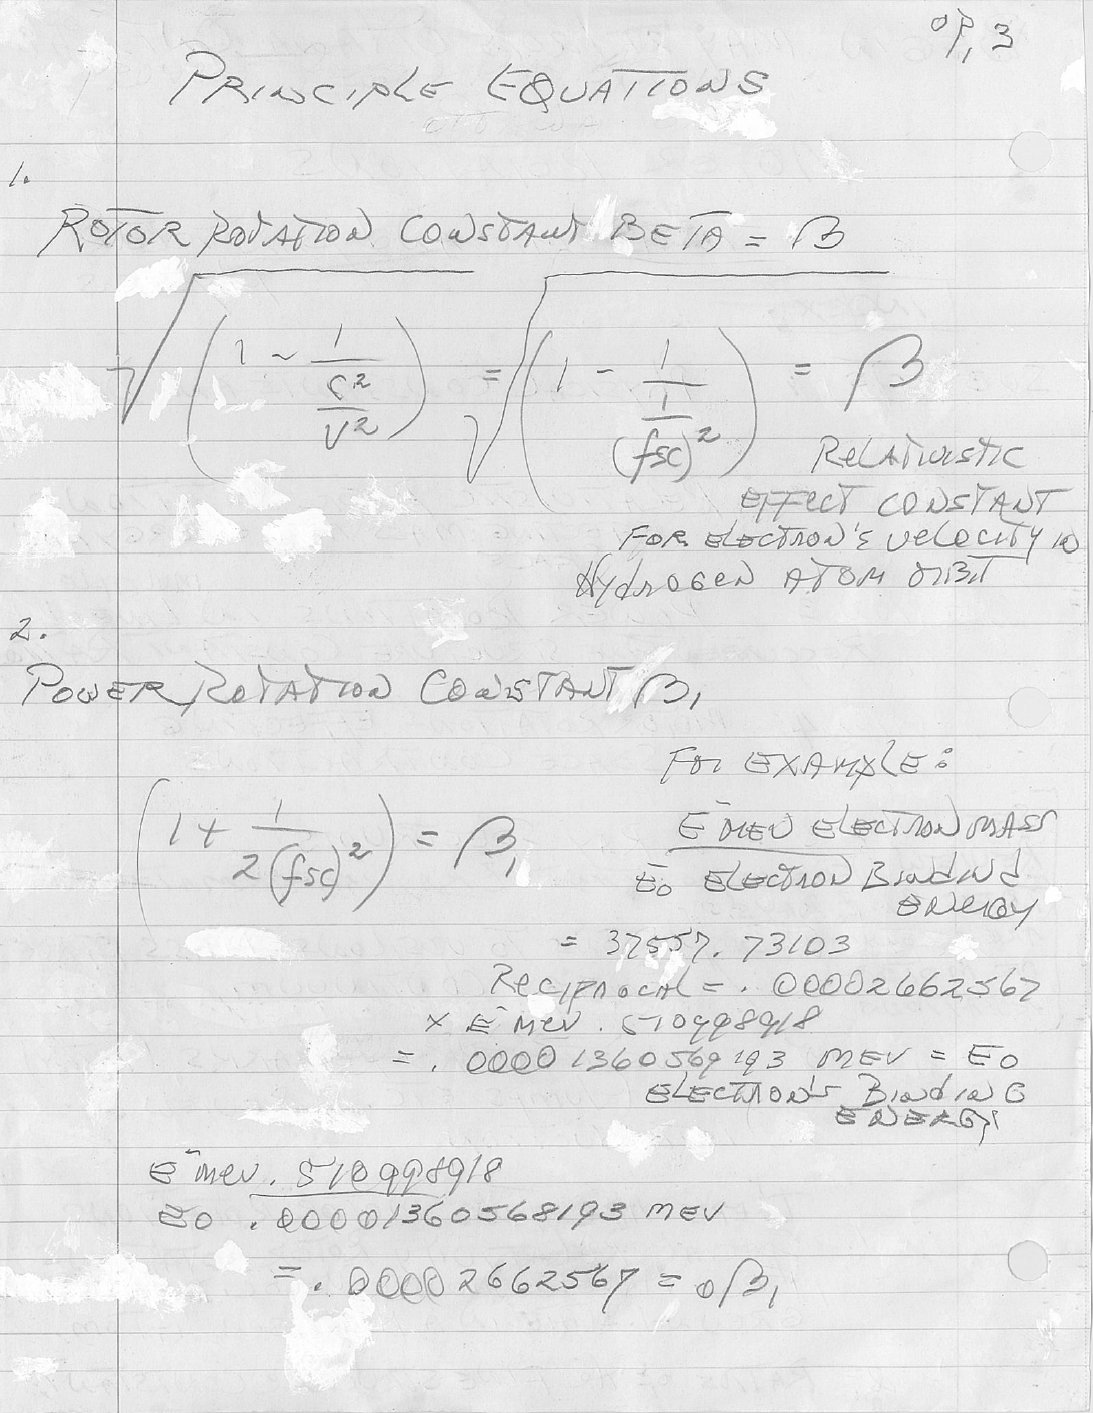 OP, 3
PRINCIPLE EQUATIONS
1.
ROTOR ROTATION CONSTANT BETA = β
√(1 - 1/(C²/V²)) = √(1 - 1/(1/(fsc)²)) = β
RELATIVISTIC
EFFECT CONSTANT
FOR ELECTRON'S VELOCITY IN
HYDROGEN ATOM ORBIT
2.
POWER ROTATION CONSTANT β₁
FOR EXAMPLE:
(1 + 1/2(fsc)²) = β₁
E⁻ MEV ELECTRON MASS
E₀ ELECTRON BINDING
ENERGY
= 37557.73103
RECIPROCAL = .00002662567
× E⁻ MEV .510998918
= .00001360569193 MEV = E₀
ELECTRON'S BINDING
ENERGY
E⁻ MEV .510998918
E₀ .00001360568193 MEV
= .00002662567 = ₀β₁